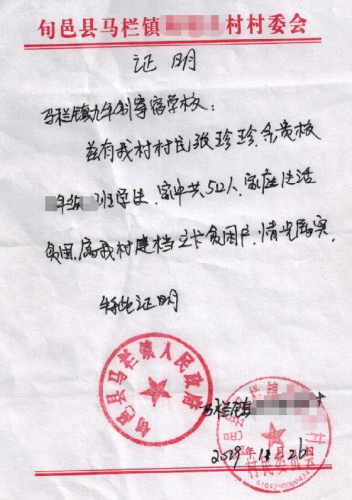 旬邑县马栏镇 村村委会
证明
马栏镇九年制寄宿学校：
兹有我村村民张珍珍，系贵校
年级 班学生，家中共5口人，家庭生活
贫困，属我村建档立卡贫困户，情况属实。
特此证明
旬邑县马栏镇人民政府
马栏镇
旬邑县马栏镇 村
村民委员会
2019年11月26日